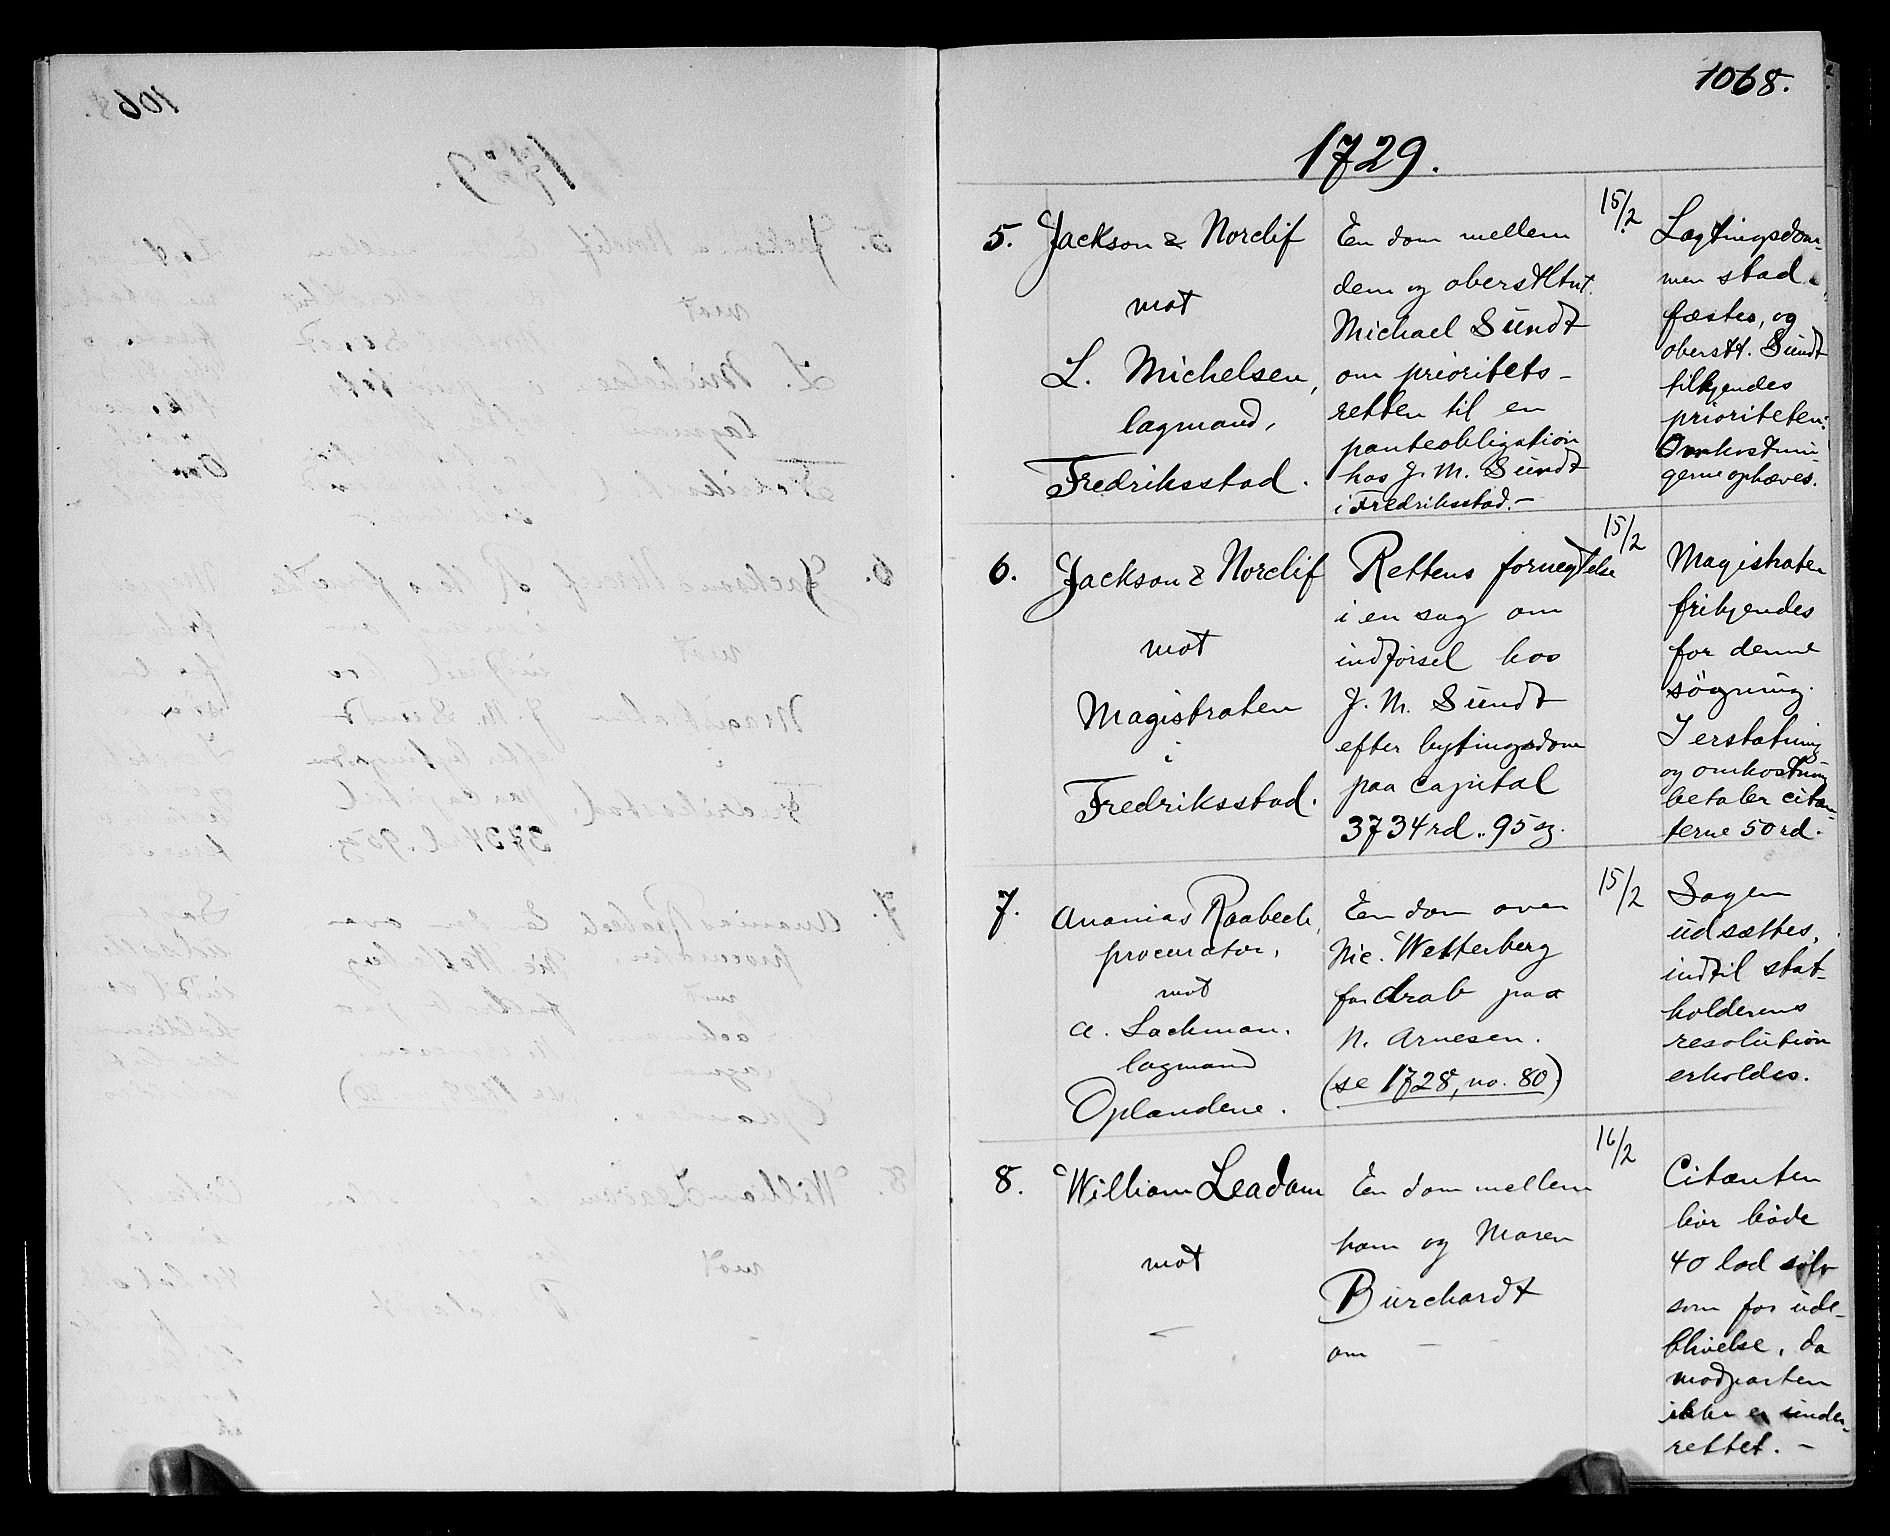 1068.
1729.
5. Jackson & Norclif
mot
L. Michelsen,
lagmand,
Fredriksstad.
En dom mellem
dem og oberstltnt.
Michael Sundt
om prioritets-
retten til en
panteobligation
hos J. M. Sundt
i Fredriksstad. -
15/2
Lagtingsdom-
men stad
fæstes, og
oberstl. Sundt
tilkjendes
prioriteten.
Omkostnin-
gerne ophæves.
6. Jackson & Norclif
mot
Magistraten
i
Fredriksstad.
Rettens fornegtelse
i en sag om
indførsel hos
J. M. Sundt
efter bytingsdom
paa capital
3734 rd. 95 sz.
15/2
Magistraten
frikjendes
for denne
søgning.
I erstatning
og omkostning
betaler citan-
terne 50 rd.
7. Ananias Raabech,
procurator,
mot
A. Lachman.
lagmand
Oplandene.
En dom over
Nic. Wetterberg
for drab paa
N. Arnesen.
(se 1728, no. 80)
15/2
Sagen
udsættes,
indtil stat-
holderens
resolution
erholdes.
8. William Leadam
mot
-
En dom mellem
ham og Maren
Burchardt
om -
16/2
Citanten
bør bøde
40 lod sølv
som for ude-
blivelse, da
modparten
ikke er under-
rettet. -